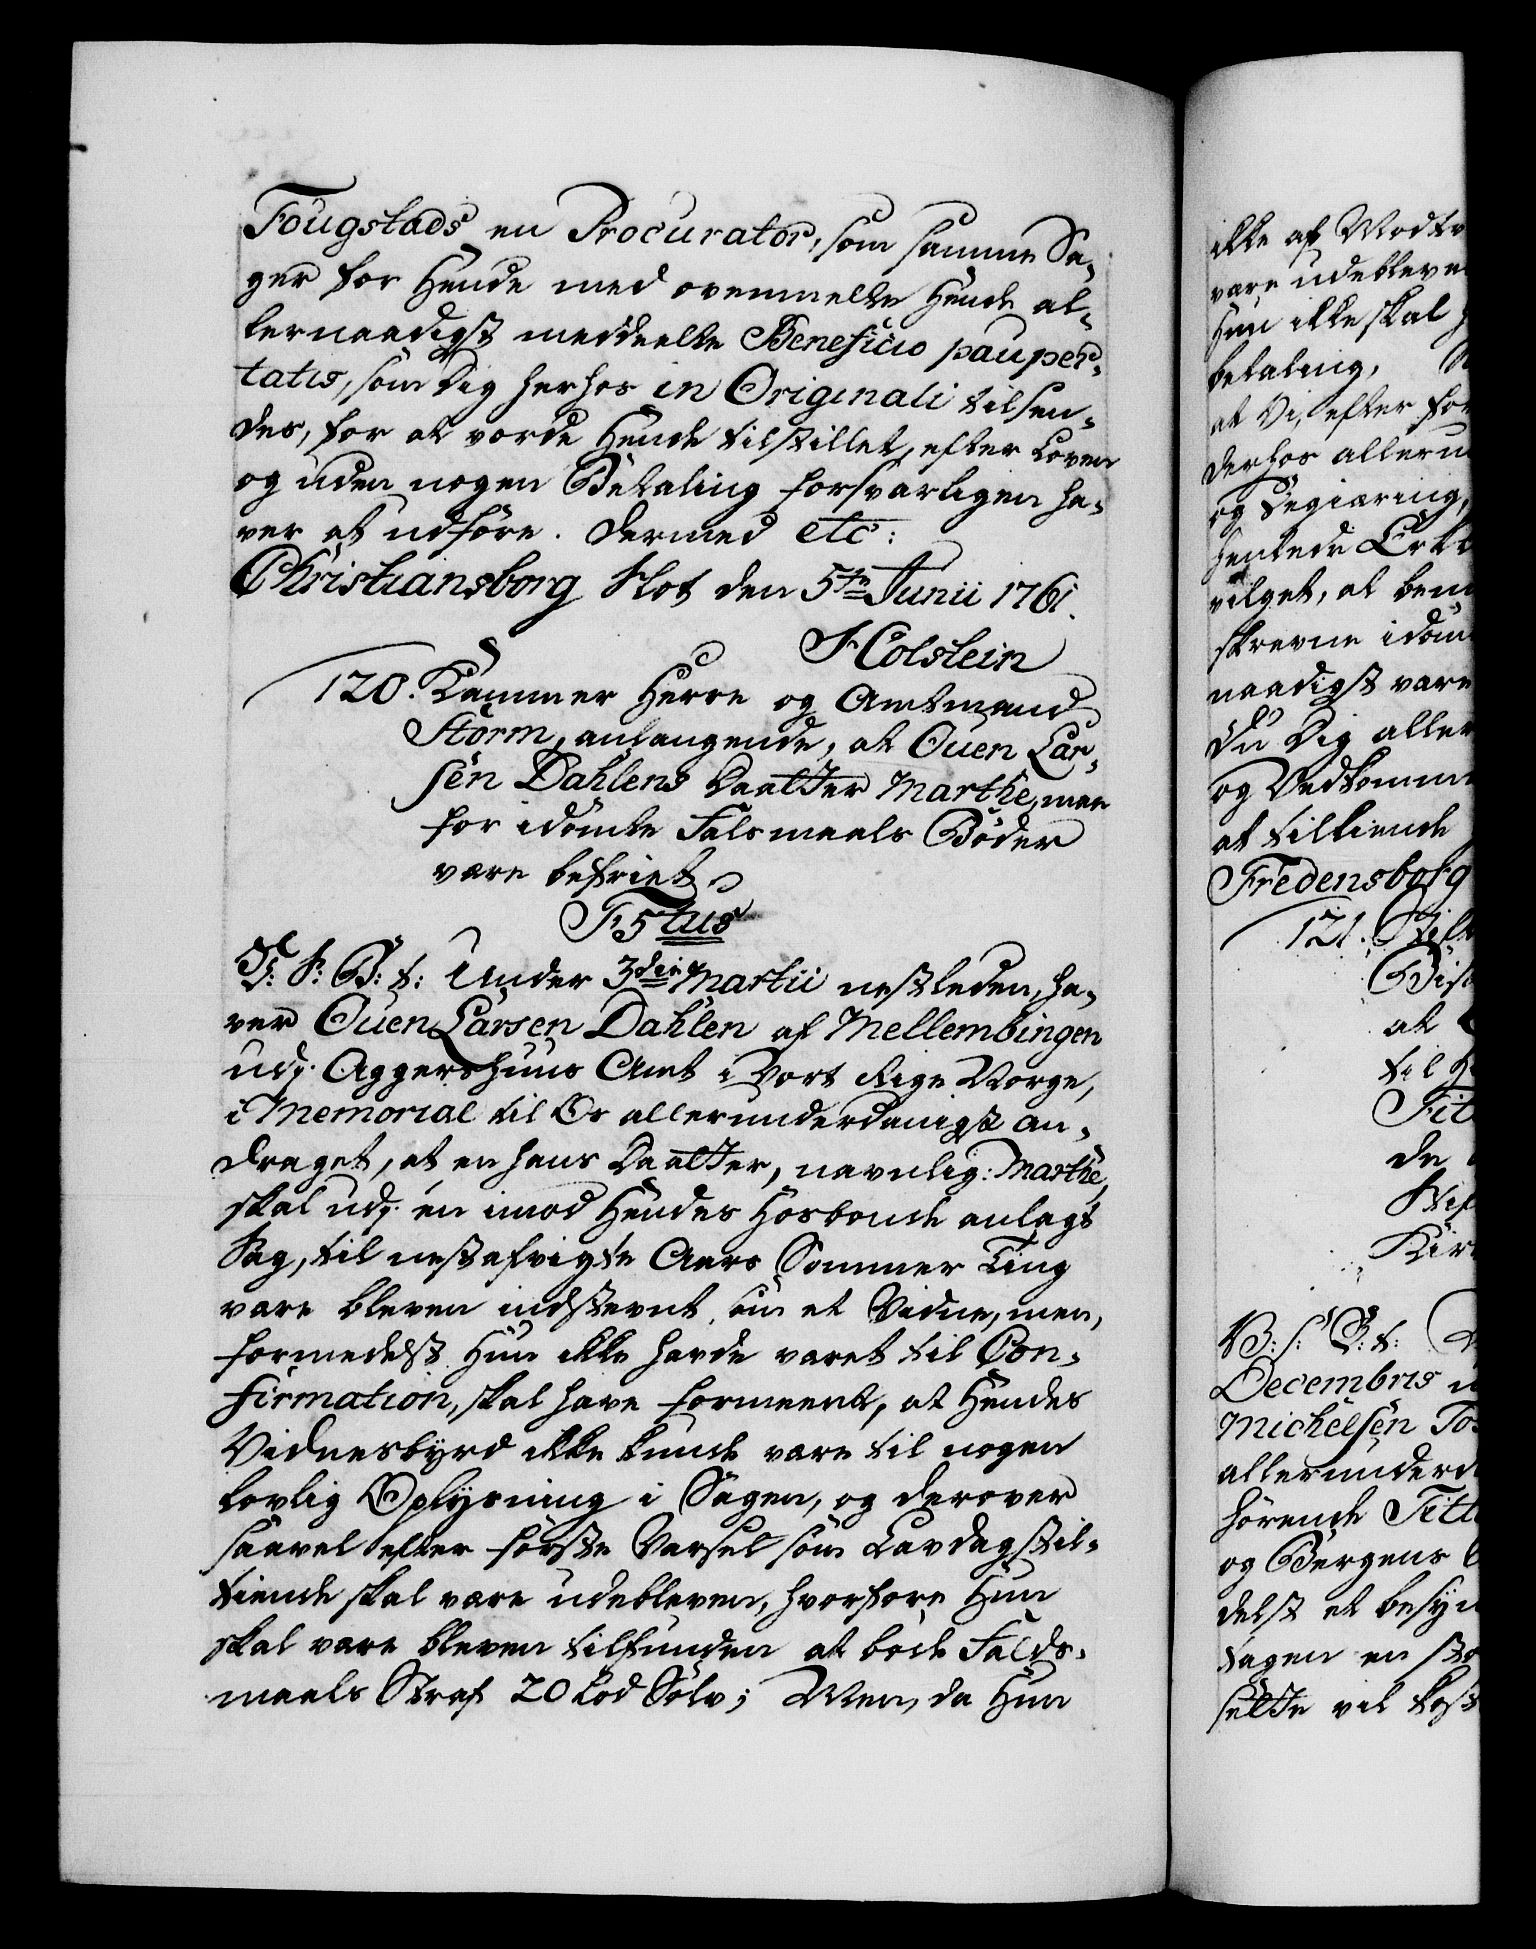 Fougstads en Procurator, som samme Sa-
ger for Hende med ovenmelte Hende al-
lernaadigst meddeelte Beneficio pauper-
tatis, som Dig herhos in Originali tilsen-
des, for at vorde Hende tilstillet, efter Loven
og uden nogen Betaling forsvarligen ha-
ver at udføre. Dermed etc:
Christiansborg Slot den 5te Junii 1761.
Holstein
120. Kammer Herre og Amtmand
Storm, anlangende, at Ouen Lar-
sen Dahlens Daatter Marthe, maae
for idømte Falsmaals Bøder
være befriet
F5tus
F: S: G: t: Under 3die Martii nestleden, ha-
ver Ouen Larsen Dahlen af Mellembingen
udj Aggershuus Amt i Vort Rige Norge,
i Memorial til Os allerunderdanigst an-
draget, at en hans Daatter, navnlig: Marthe,
skal udj en imod Hendes Hosbonde anlagt
Sag, til nestafvigte Aars Sommer Ting
være bleven indstevnt som et Vidne, men,
formedelst Hun ikke havde været til Con-
firmation, skal have formeent, at Hendes
Vidnesbyrd ikke kunde være til nogen
lovlig Oplysning i Sagen, og derover
saavel efter første Varsel som Lavdags til-
tiende skal være udebleven, hvorfore Hun
skal være bleven tilfunden at bøde Falds-
maals Straf 20 Lod Sølv; Men, da Hun
ikke af Modtv
være udebleve
Hun ikke skal
betaling,
at Vi, efter for
derhos alleru
og Begiæring,
hentede Erkl
vilget, at bem
skrevne idøm
naadigst være
Du Dig aller
og Vedkomm
at tilkiende
Fredensborg
121. Stift
Bis
at
til H
Tit
de
Stif
Kir
V: S: G: t:
Decembris
Michelsen To
allerunderd
hørende Titl
og Bergens
delst et besyn
tagen en st
sætte vil kost